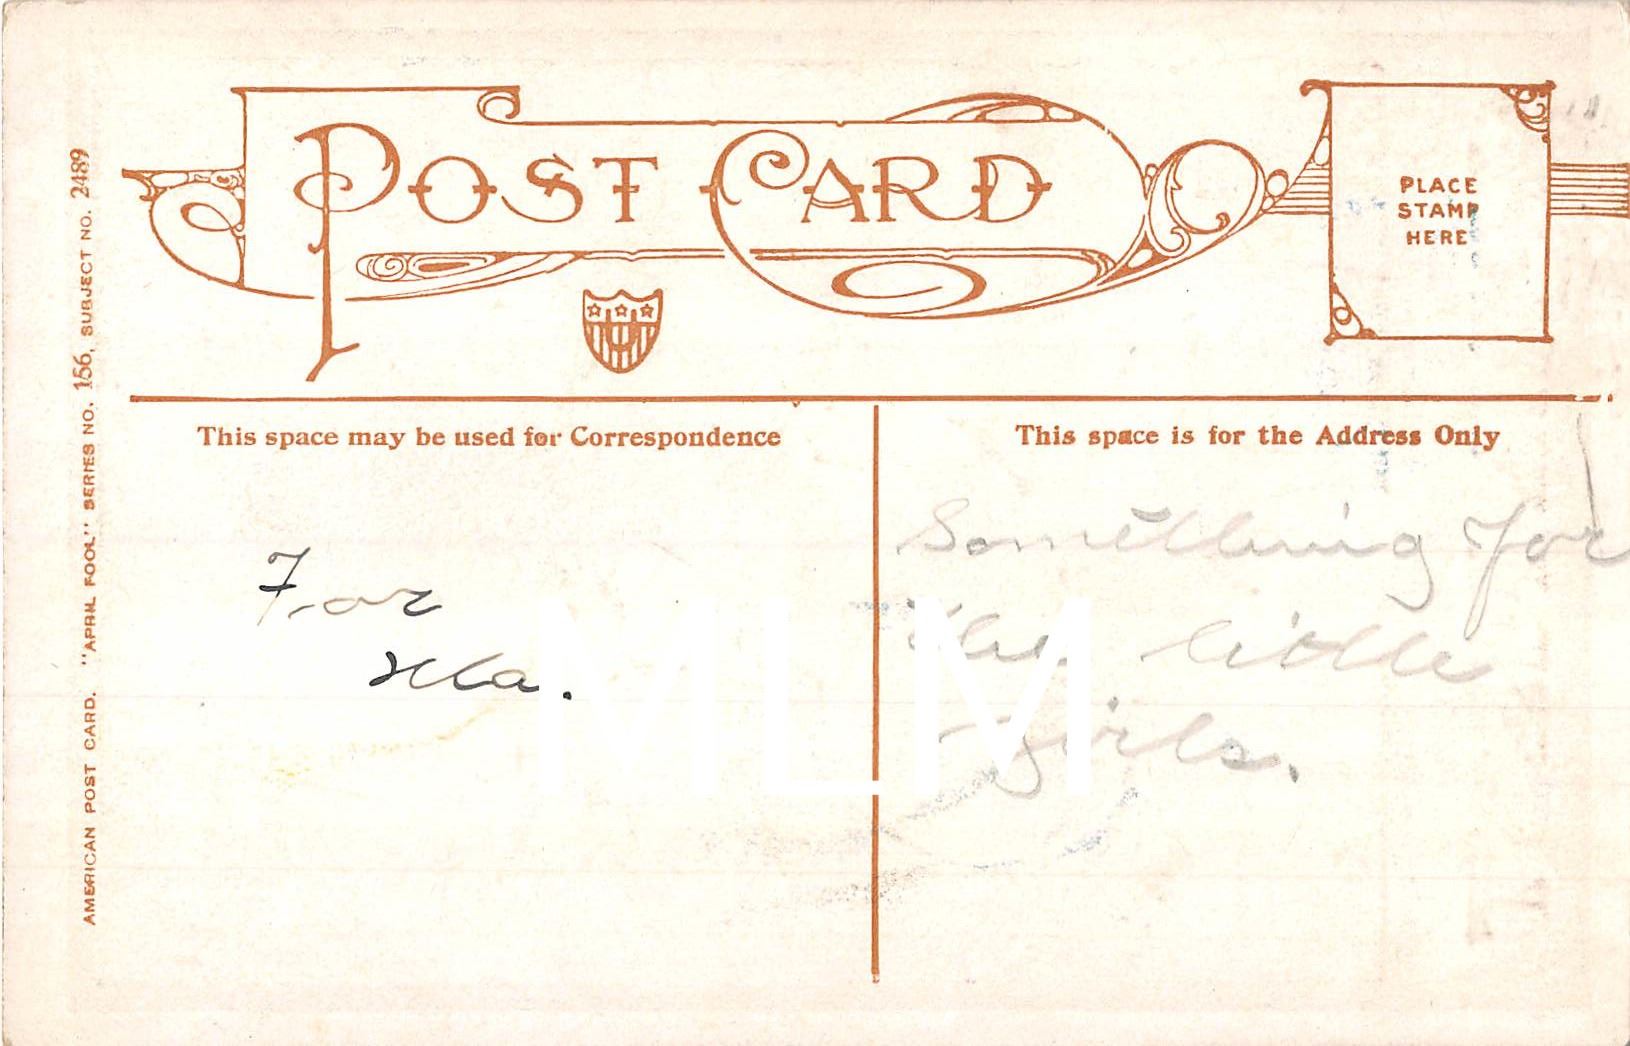 POST CARD
PLACE
STAMP
HERE
AMERICAN POST CARD. "APRIL FOOL" SERIES NO. 156, SUBJECT NO. 2489
This space may be used for Correspondence
For
This space is for the Address Only
Something for
the little
girls.
MLM